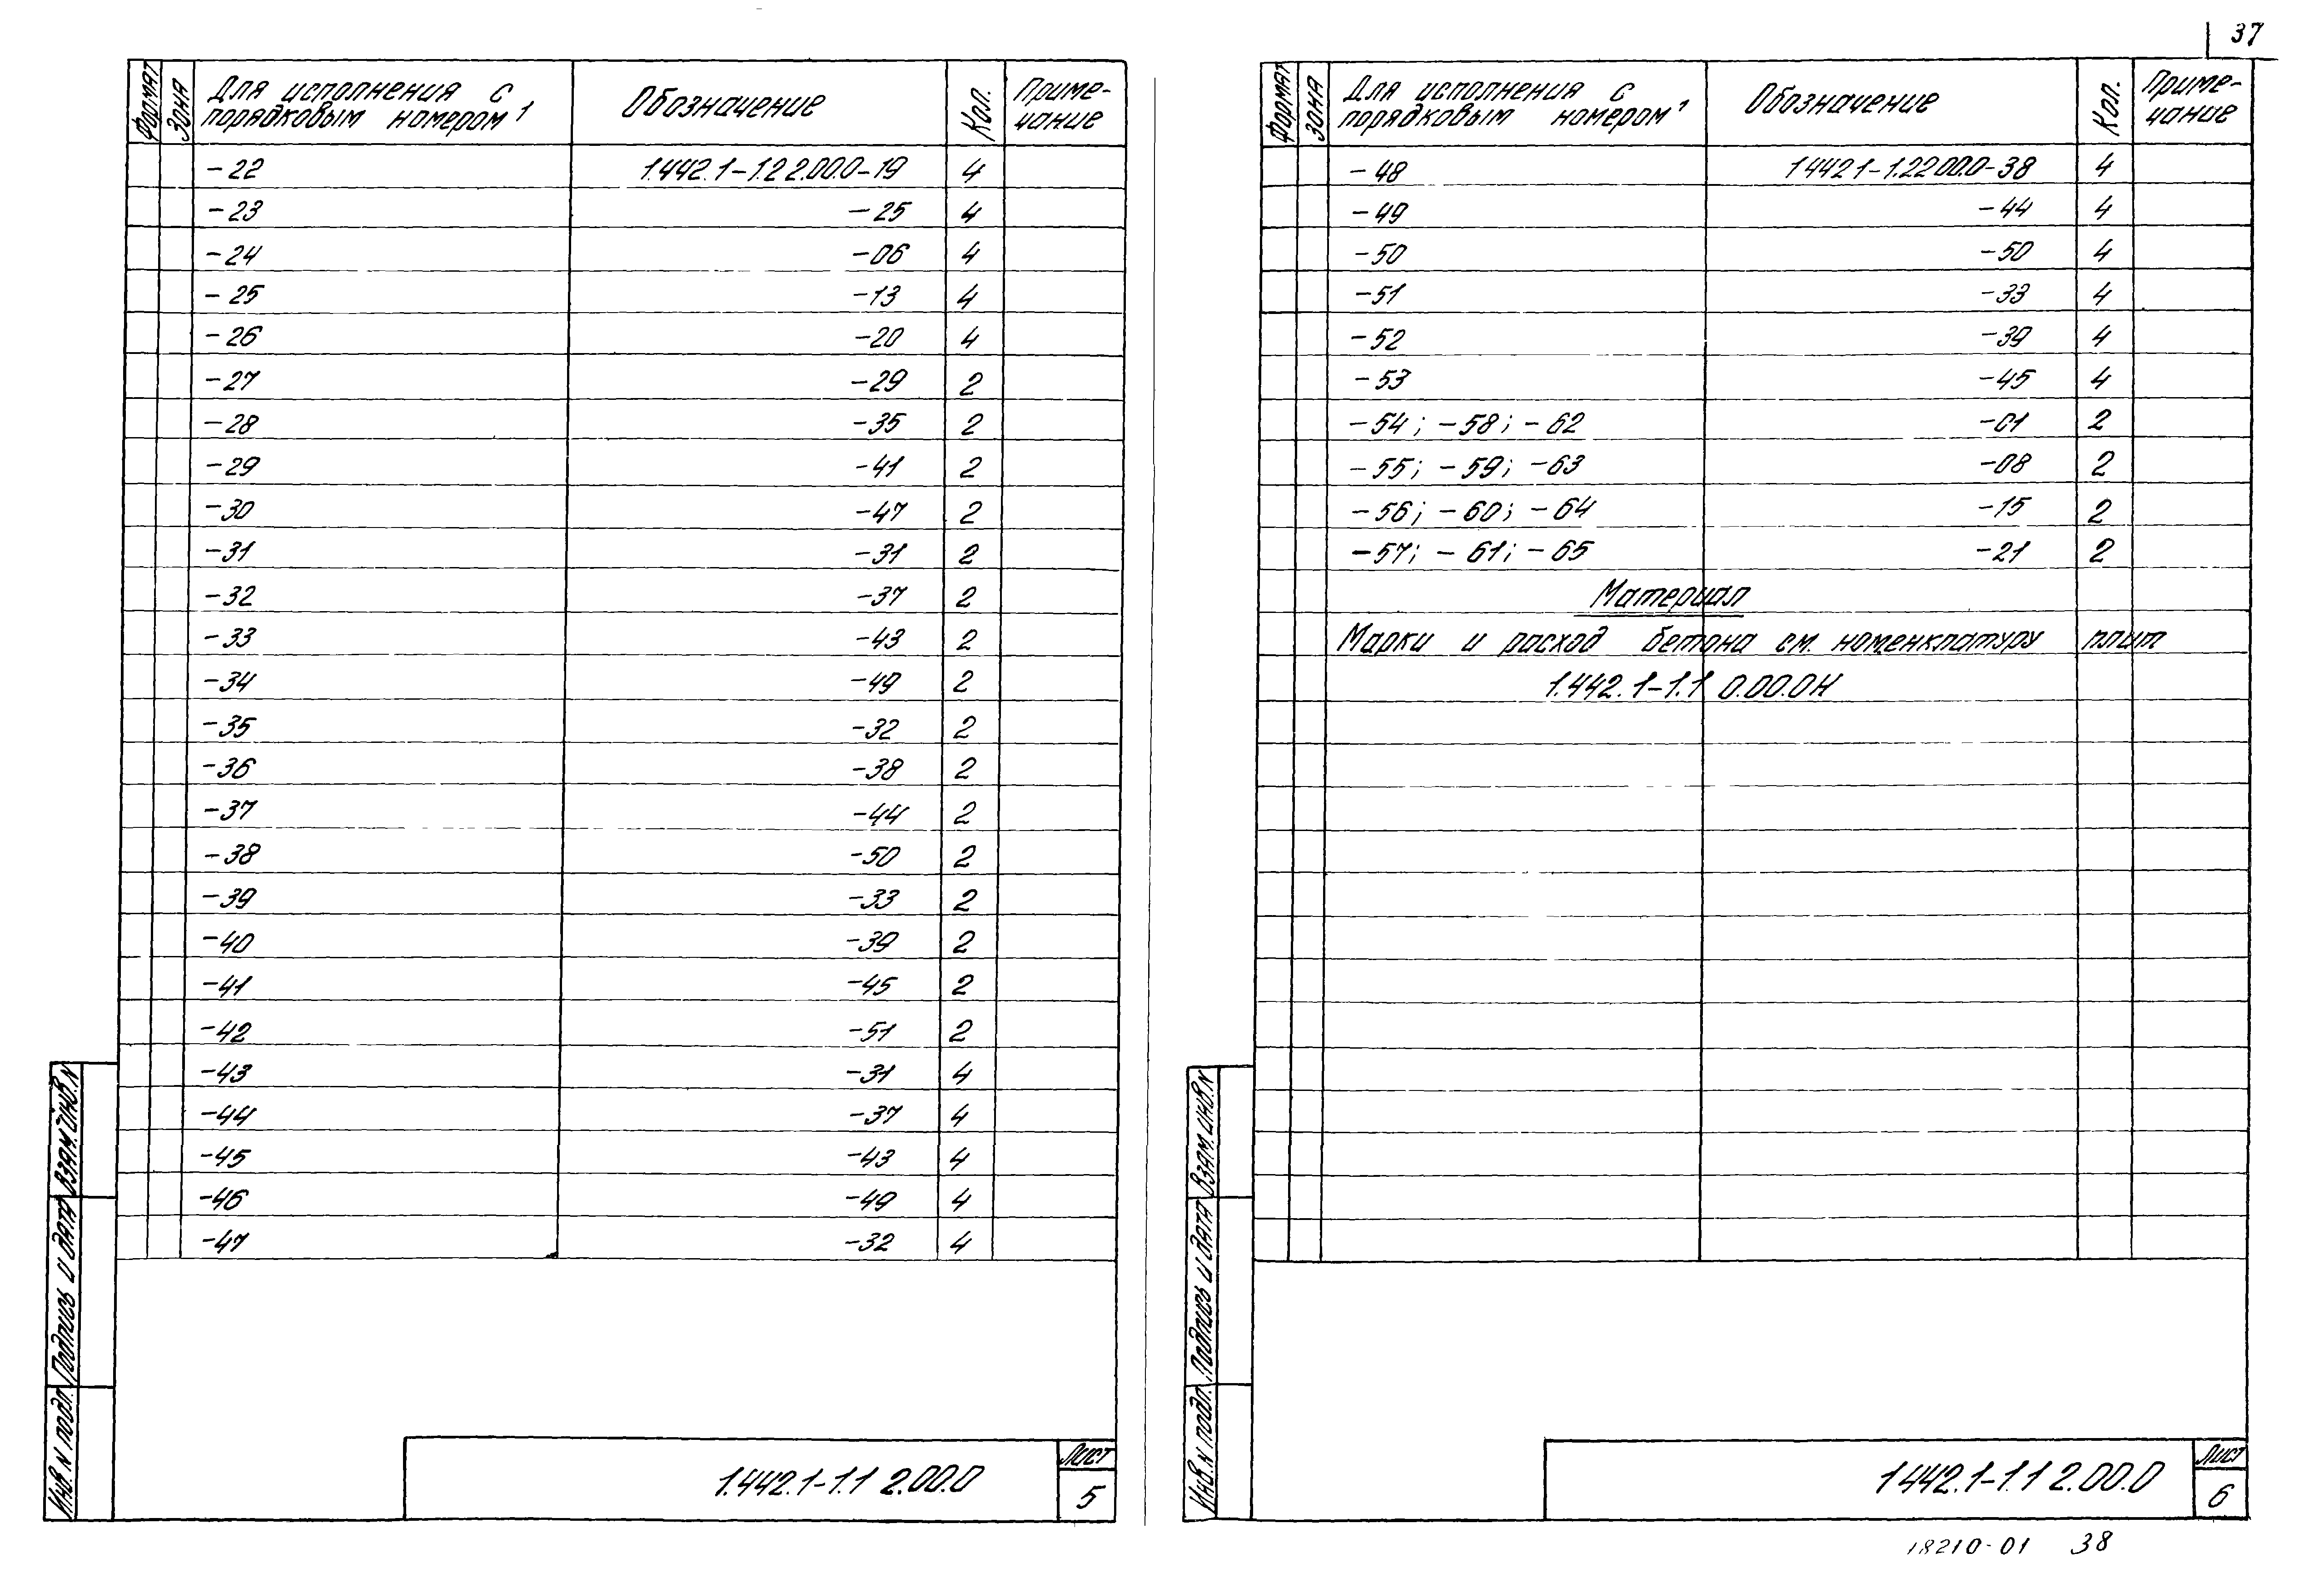 37
Формат Зона Для исполнения с порядковым номером¹ Обозначение Кол. Примечание
-22 1.442.1-1.2 2.00.0-19 4
-23 -25 4
-24 -06 4
-25 -13 4
-26 -20 4
-27 -29 2
-28 -35 2
-29 -41 2
-30 -47 2
-31 -31 2
-32 -37 2
-33 -43 2
-34 -49 2
-35 -32 2
-36 -38 2
-37 -44 2
-38 -50 2
-39 -33 2
-40 -39 2
-41 -45 2
-42 -51 2
-43 -31 4
-44 -37 4
-45 -43 4
-46 -49 4
-47 -32 4
Взам. инв. N
Подпись и дата
Инв. N подл.
1.442.1-1.1 2.00.0
Лист
5
Формат Зона Для исполнения с порядковым номером¹ Обозначение Кол. Примечание
-48 1.442.1-1.2 2.00.0-38 4
-49 -44 4
-50 -50 4
-51 -33 4
-52 -39 4
-53 -45 4
-54; -58; -62 -01 2
-55; -59; -63 -08 2
-56; -60; -64 -15 2
-57; -61; -65 -21 2
Материал
Марки и расход бетона см. номенклатуру плит
1.442.1-1.1 0.00.0Н
Взам. инв. N
Подпись и дата
Инв. N подл.
1.442.1-1.1 2.00.0
Лист
6
18210-01 38